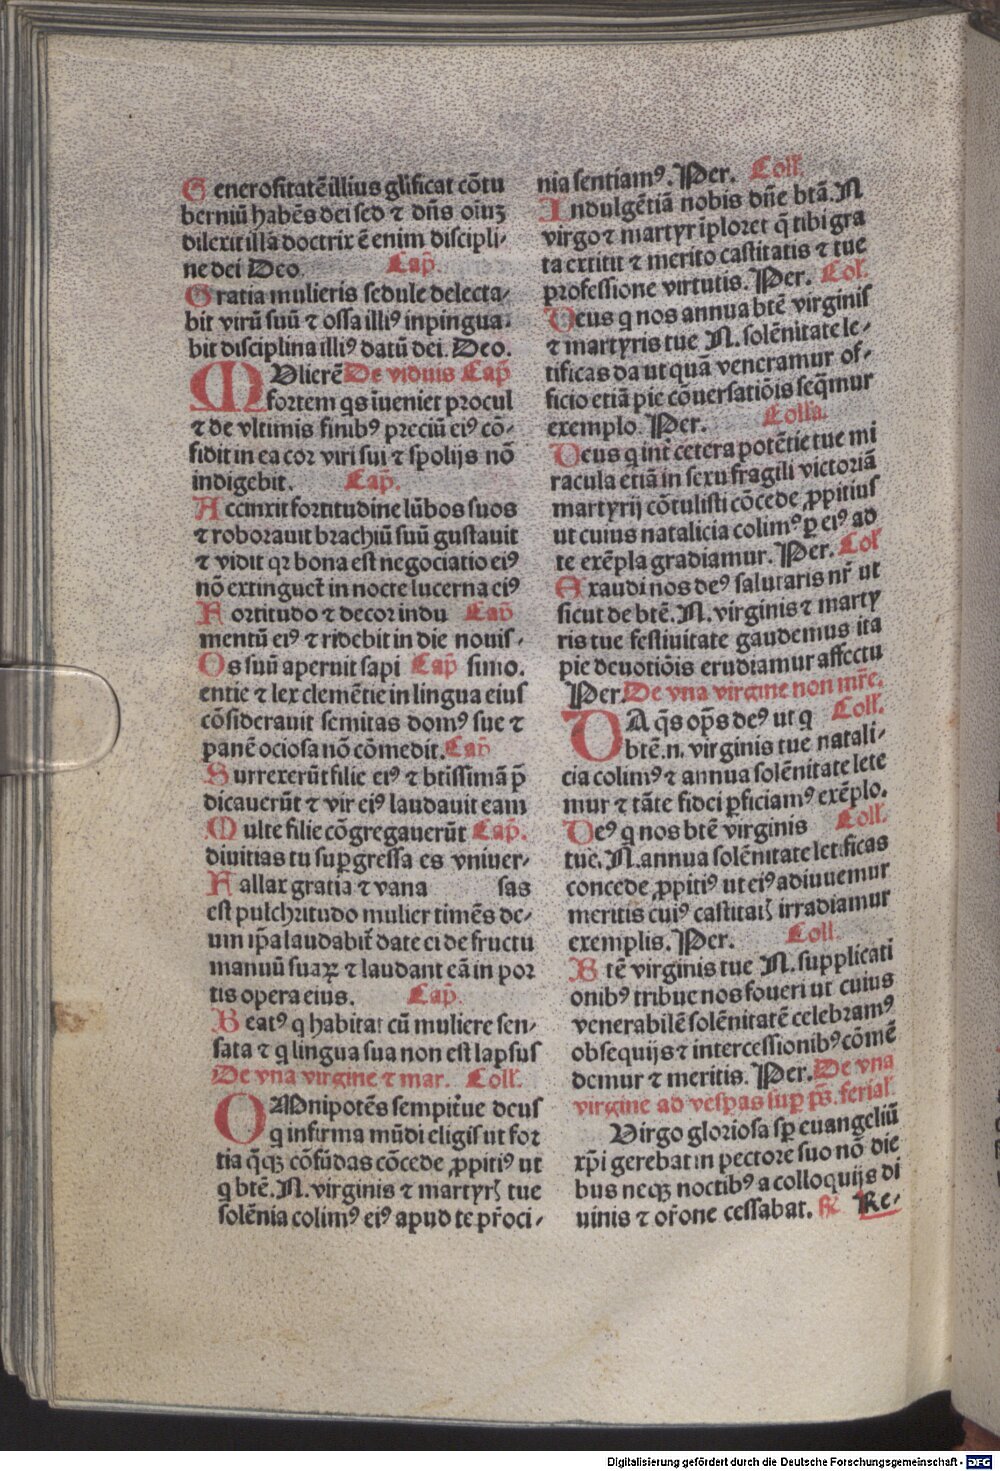 Generositatē illius glificat cōtu
berniū habēs dei sed ⁊ dn̄s oīuꝫ
dilexit illā doctrix ē enim discipli⸗
ne dei Deo. Cap̄.
Gratia mulieris sedule delecta⸗
bit virū suū ⁊ ossa illiꝰ inpingua⸗
bit disciplina illiꝰ datū dei. Deo.
MUlierē De viduis Cap̄
fortem qs īueniet procul
⁊ de vltimis finibꝰ preciū eiꝰ cō⸗
fidit in ea cor viri sui ⁊ spolijs nō
indigebit. Cap̄.
Accinxit fortitudine lūbos suos
⁊ roborauit brachiū suū gustauit
⁊ vidit qꝛ bona est negociatio eiꝰ
nō extinguet̄ in nocte lucerna eiꝰ
Fortitudo ⁊ decor indu Cap̄
mentū eiꝰ ⁊ ridebit in die nouis⸗
Os suū aperuit sapi Cap̄ simo.
entie ⁊ lex clemētie in lingua eius
cōsiderauit semitas domꝰ sue ⁊
panē ociosa nō cōmedit. Cap̄
Surrexerūt filie eiꝰ ⁊ btissimā p̄
dicauerūt ⁊ vir eiꝰ laudauit eam
Multe filie cōgregauerūt Cap̄.
diuitias tu suꝑgressa es vniuer⸗
Fallax gratia ⁊ vana sas
est pulchritudo mulier timēs de⸗
um ip̄a laudabit̄ date ei de fructu
manuū suaꝝ ⁊ laudant eā in por
tis opera eius. Cap̄.
Beatꝰ q habitat cū muliere sen⸗
sata ⁊ q lingua sua non est lapsus
De vna virgine ⁊ mar. Coll̄.
OMnipotēs sempit̄ue deus
q infirma mūdi eligis ut for
tia q̄qꝫ cōfūdas cōcede ꝓpitiꝰ ut
q btē. N. virginis ⁊ martyrꝭ tue
solēnia colimꝰ eiꝰ apud te pr̄oci⸗
nia sentiamꝰ. Per. Coll̄.
Indulgētiā nobis dn̄e btā. N
virgo ⁊ martyr īploret q̄ tibi gra
ta extitit ⁊ merito castitatis ⁊ tue
professione virtutis. Per. Col̄.
Deus q nos annua btē virginis
⁊ martyris tue N. solēnitate le⸗
tificas da ut quā veneramur of⸗
ficio etiā pie cōuersatiōis seq̄mur
exemplo. Per. Colla.
Deus q int̄ cetera potētie tue mi
racula etiā in sexu fragili victoriā
martyrij cōtulisti cōcede ꝓpitius
ut cuius natalicia colimꝰ ꝑ eiꝰ ad
te exēpla gradiamur. Per. Col̄
Exaudi nos deꝰ salutaris nr̄ ut
sicut de btē. N. virginis ⁊ marty
ris tue festiuitate gaudemus ita
pie deuotiōis erudiamur affectu
Per. De vna virgine non mr̄e.
DA q̄s op̄s deꝰ ut q Coll̄.
btē. n. virginis tue natali⸗
cia colimꝰ ⁊ annua solēnitate lete
mur ⁊ tāte fidei ꝑficiamꝰ exēplo.
Deꝰ q nos btē virginis Coll̄.
tue. N. annua solēnitate letificas
concede ꝓpitiꝰ ut eiꝰ adiuuemur
meritis cuiꝰ castitatꝭ irradiamur
exemplis. Per. Coll̄.
Btē virginis tue N. supplicati
onibꝰ tribue nos foueri ut cuius
venerabilē solēnitatē celebramꝰ
obsequijs ⁊ intercessionibꝰ cōmē
demur ⁊ meritis. Per. De vna
virgine ad vesꝑas suꝑ ps̄. ferial̄.
Virgo gloriosa sꝑ euangeliū
xp̄i gerebat in pectore suo nō die
bus neqꝫ noctibꝰ a colloquijs di
uinis ⁊ or̄one cessabat. ꝶ Re⸗
Digitalisierung gefördert durch die Deutsche Forschungsgemeinschaft - DFG